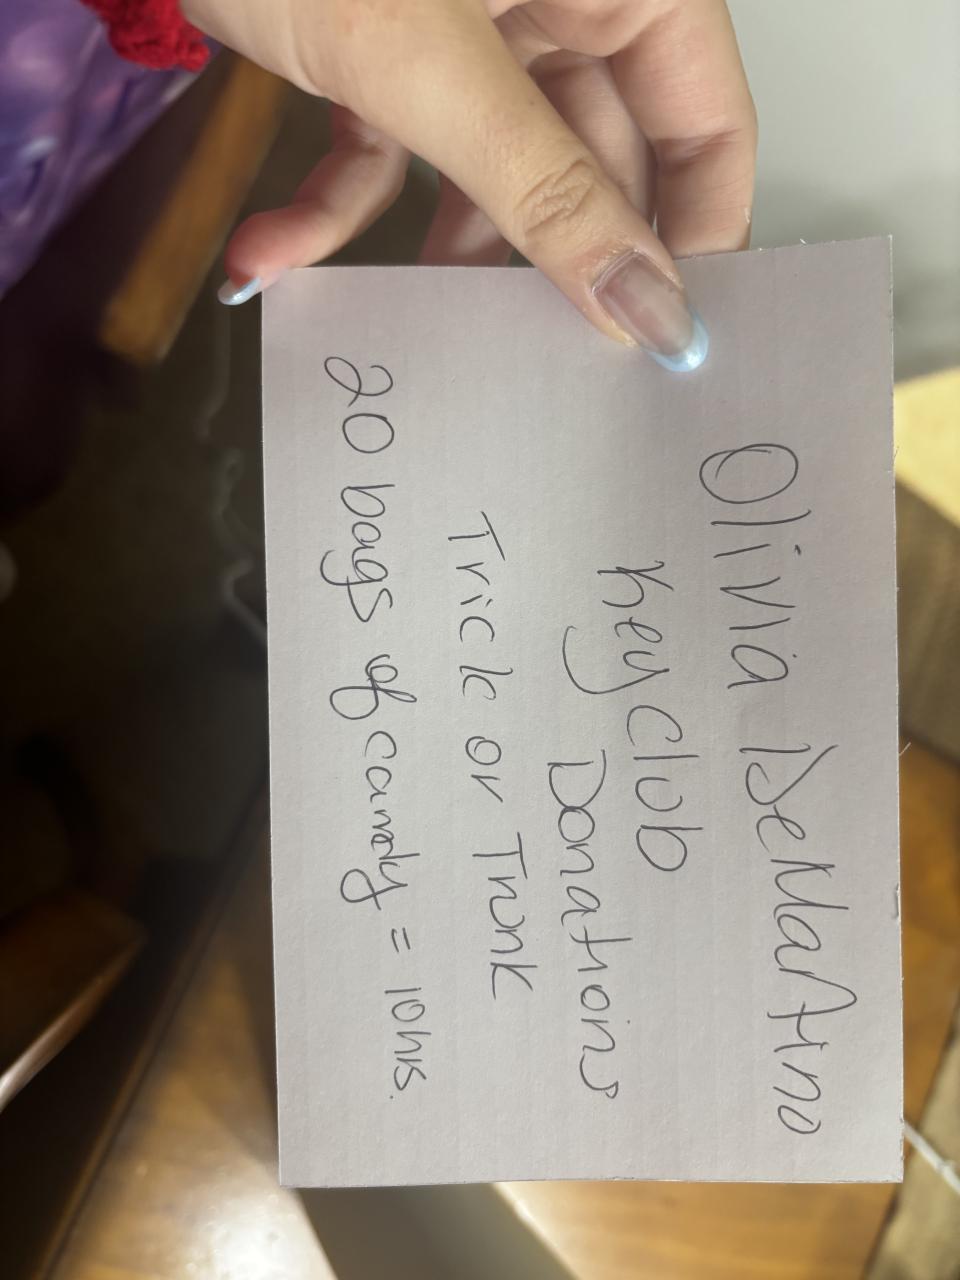 Olivia DeMartino
Key Club
Donations
Trick or Trunk
20 bags of candy = 10hrs.